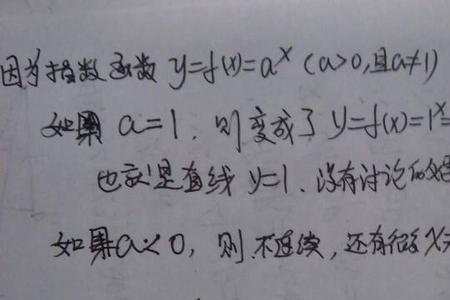 因为指数函数 y=f(x)=a^x (a>0,且a≠1)
如果 a=1. 则变成了 y=f(x)=1^x=
也就是直线 y=1. 没有讨论的
如果a<0, 则不连续, 还有很多x